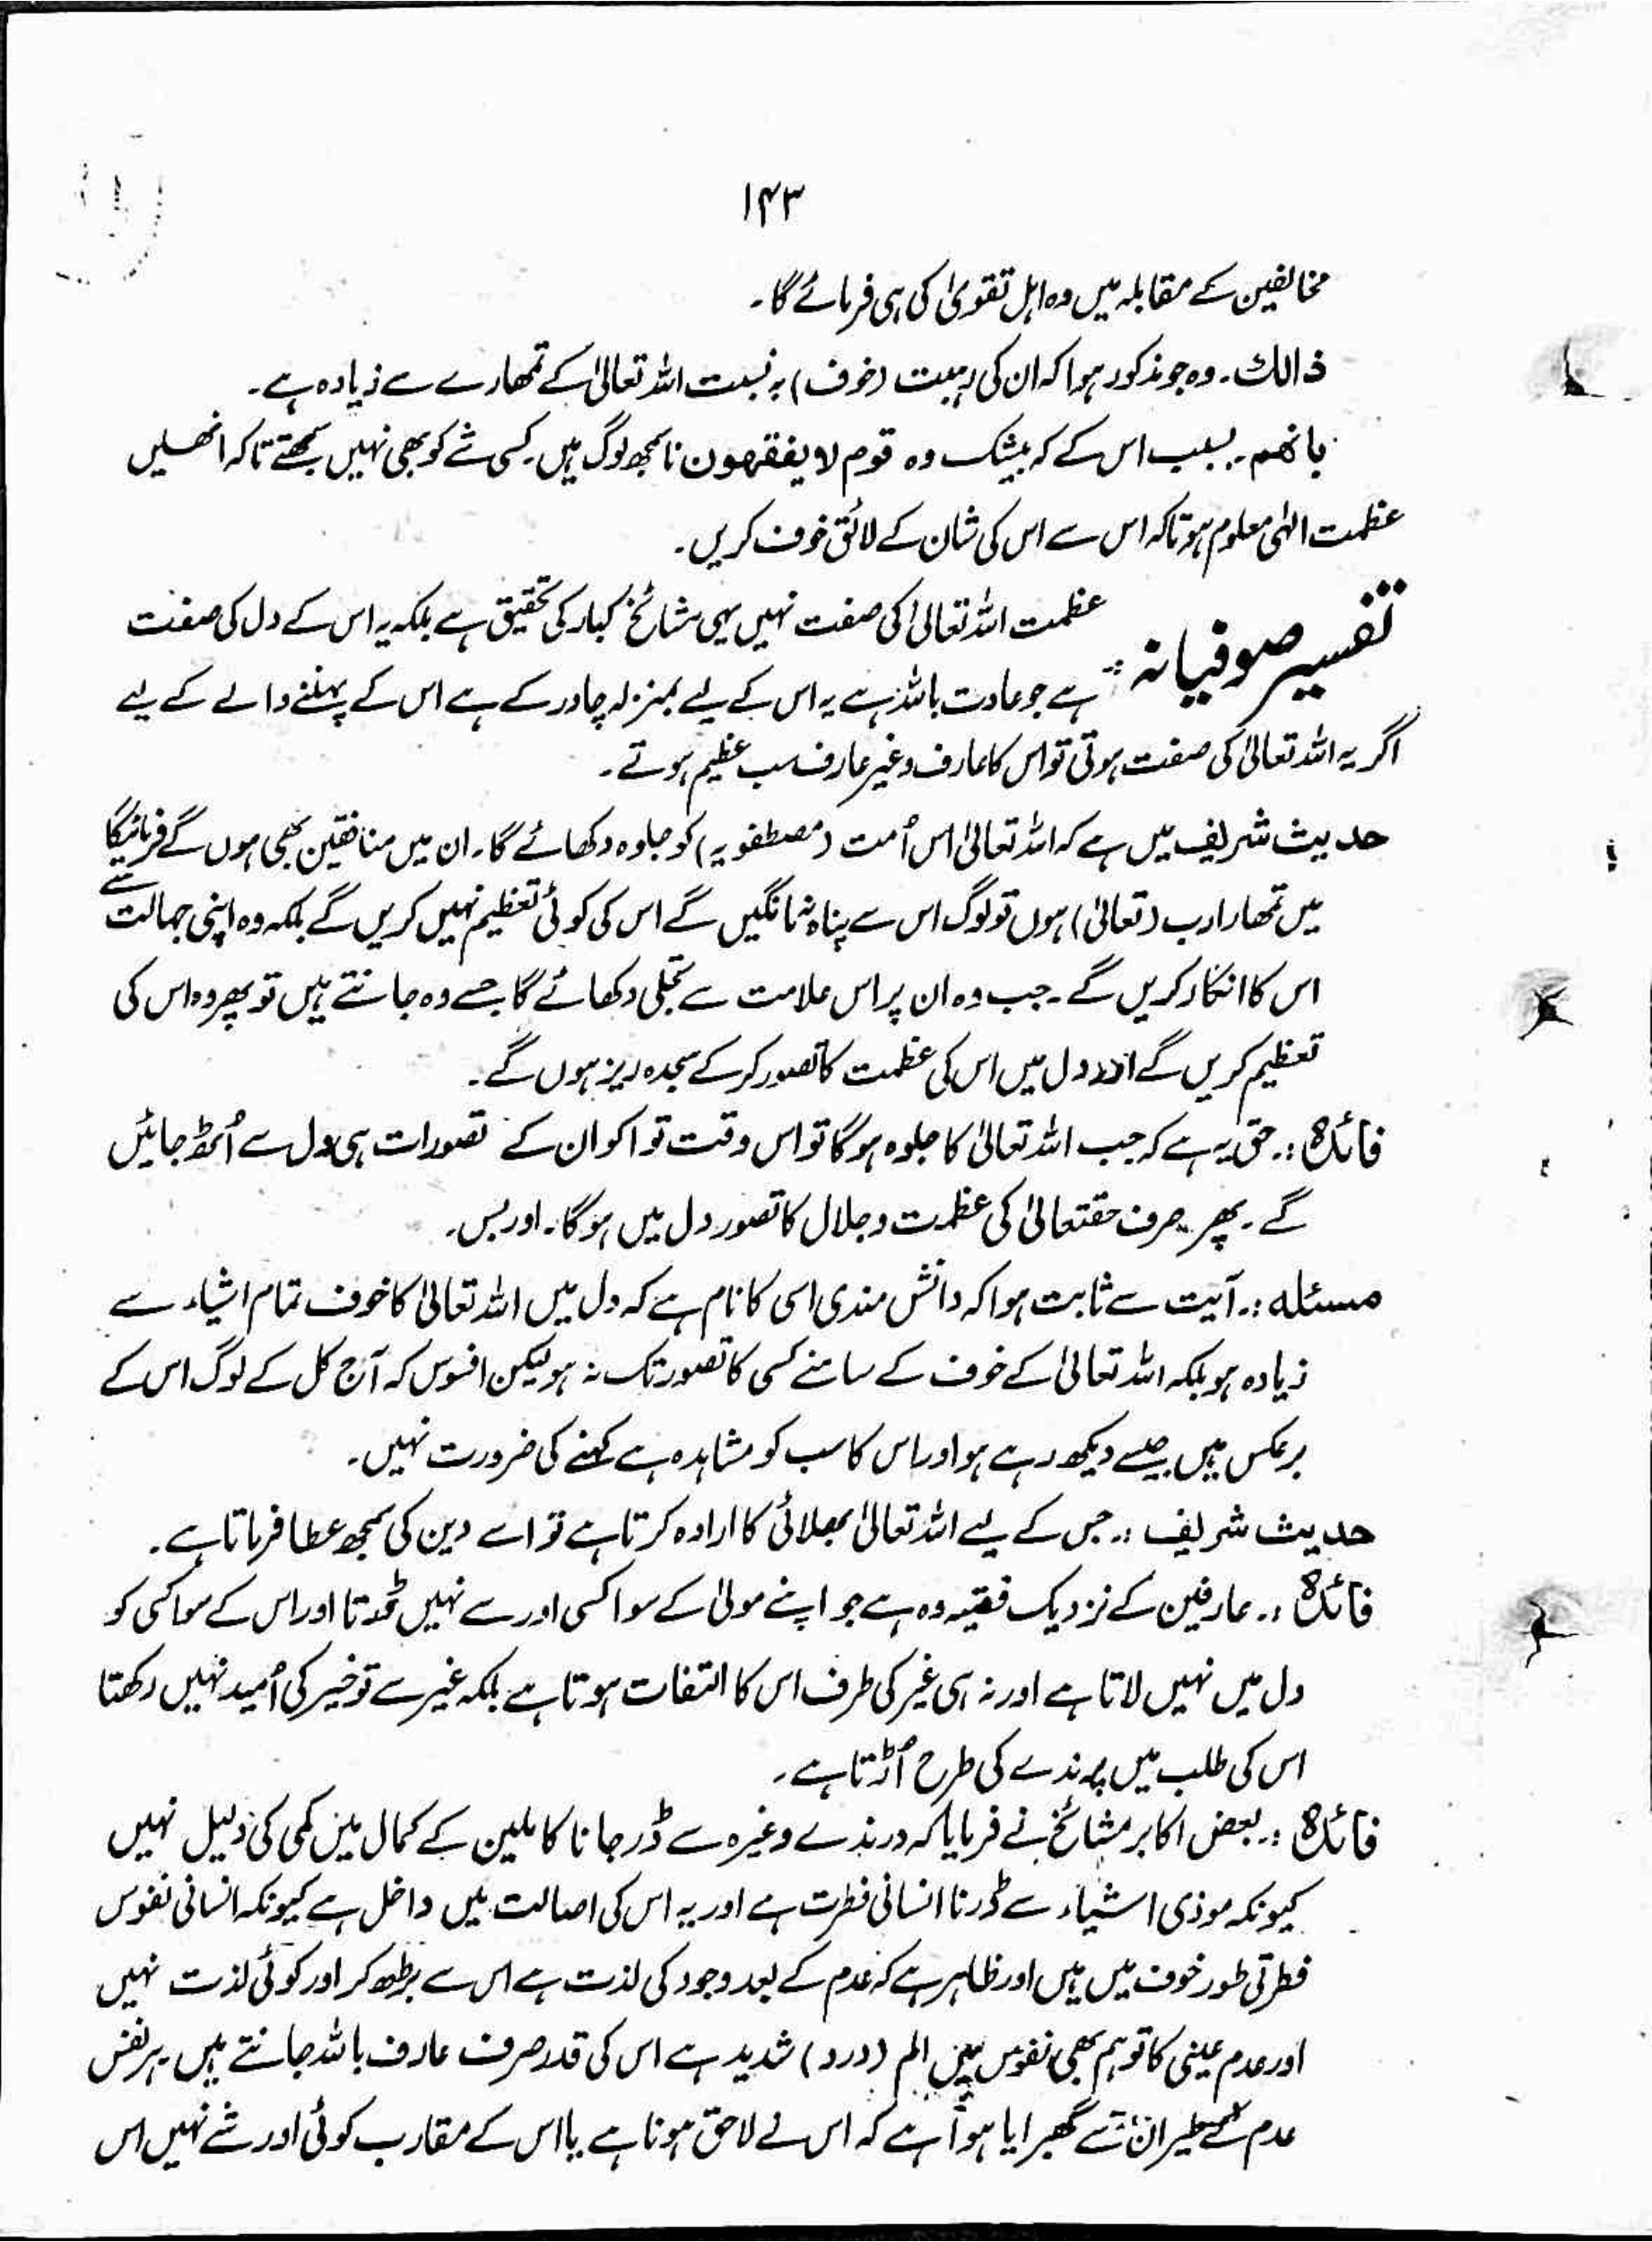 ۱۴۳
مخالفین کے مقابلہ میں وہ اہل تقویٰ کی ہی فرمائے گا۔
ذالك۔ وہ جو مذکور ہوا کہ ان کی ہیبت (خوف) بہ نسبت اللہ تعالیٰ کے تمھارے سے زیادہ ہے۔
بانھم۔ بسبب اس کے کہ بیشک وہ قوم لا یفقھون نا سمجھ لوگ ہیں۔ کسی شے کو بھی نہیں سمجھتے تاکہ انھیں
عظمت الٰہی معلوم ہو تاکہ اس سے اس کی شان کے لائق خوف کریں۔
تفسیر صوفیانہ :- عظمت اللہ تعالیٰ کی صفت نہیں یہی مشائخ کبار کی تحقیق ہے بلکہ یہ اس کے دل کی صفت
ہے جو عارف باللہ ہے یہ اس کے لیے بمنزلہ چادر کے ہے اس کے پہننے والے کے لیے
اگر یہ اللہ تعالیٰ کی صفت ہوتی تو اس کا عارف وغیر عارف سب عظیم ہوتے۔
حدیث شریف میں ہے کہ اللہ تعالیٰ اس اُمت (مصطفویہ) کو جلوہ دکھائے گا۔ ان میں منافقین بھی ہوں گے فرمائیگا
میں تمھارا رب (تعالیٰ) ہوں تو لوگ اس سے پناہ مانگیں گے اس کی کوئی تعظیم نہیں کریں گے بلکہ وہ اپنی جہالت سے
اس کا انکار کریں گے۔ جب وہ ان پر اس علامت سے تجلی دکھائے گا جسے وہ جانتے ہیں تو پھر وہ اس کی
تعظیم کریں گے اور دل میں اس کی عظمت کا تصور کر کے سجدہ ریز ہوں گے۔
فائدہ :۔ حق یہ ہے کہ جب اللہ تعالیٰ کا جلوہ ہوگا تو اس وقت تو اکوان کے تصورات ہی دل سے اُٹھ جائیں
گے۔ پھر صرف حقتعالیٰ کی عظمت وجلال کا تصور دل میں ہوگا۔ اور بس۔
مسئلہ :۔ آیت سے ثابت ہوا کہ دانش مندی اسی کا نام ہے کہ دل میں اللہ تعالیٰ کا خوف تمام اشیاء سے
زیادہ ہو بلکہ اللہ تعالیٰ کے خوف کے سامنے کسی کا تصور تک نہ ہو لیکن افسوس کہ آج کل کے لوگ اس کے
برعکس ہیں جیسے دیکھ رہے ہو اور اس کا سب کو مشاہدہ ہے کہنے کی ضرورت نہیں۔
حدیث شریف :۔ جس کے لیے اللہ تعالیٰ بھلائی کا ارادہ کرتا ہے تو اسے دین کی سمجھ عطا فرماتا ہے۔
فائدہ :۔ عارفین کے نزدیک فقیہ وہ ہے جو اپنے مولیٰ کے سوا کسی اور سے نہیں ڈرتا اور اس کے سوا کسی کو
دل میں نہیں لاتا ہے اور نہ ہی غیر کی طرف اس کا التفات ہوتا ہے بلکہ غیر سے تو خیر کی اُمید نہیں رکھتا
اس کی طلب میں پرندے کی طرح اُڑتا ہے۔
فائدہ :۔ بعض اکابر مشائخ نے فرمایا کہ درندے وغیرہ سے ڈر جانا کاملین کے کمال میں کمی کی دلیل نہیں
کیونکہ موذی اشیاء سے ڈرنا انسانی فطرت ہے اور یہ اس کی اصالت میں داخل ہے کیونکہ انسانی نفوس
فطرتی طور خوف میں ہیں اور ظاہر ہے کہ عدم کے بعد وجود کی لذت ہے اس سے بڑھ کر اور کوئی لذت نہیں
اور عدم عینی کا توہم بھی نفوس میں الم (درد) شدید ہے اس کی قدر صرف عارف باللہ جانتے ہیں۔ ہر نفس
عدم کے طیران سے گھبرایا ہوا ہے کہ اس نے لاحق ہونا ہے یا اس کے مقارب کوئی اور شے نہیں اس